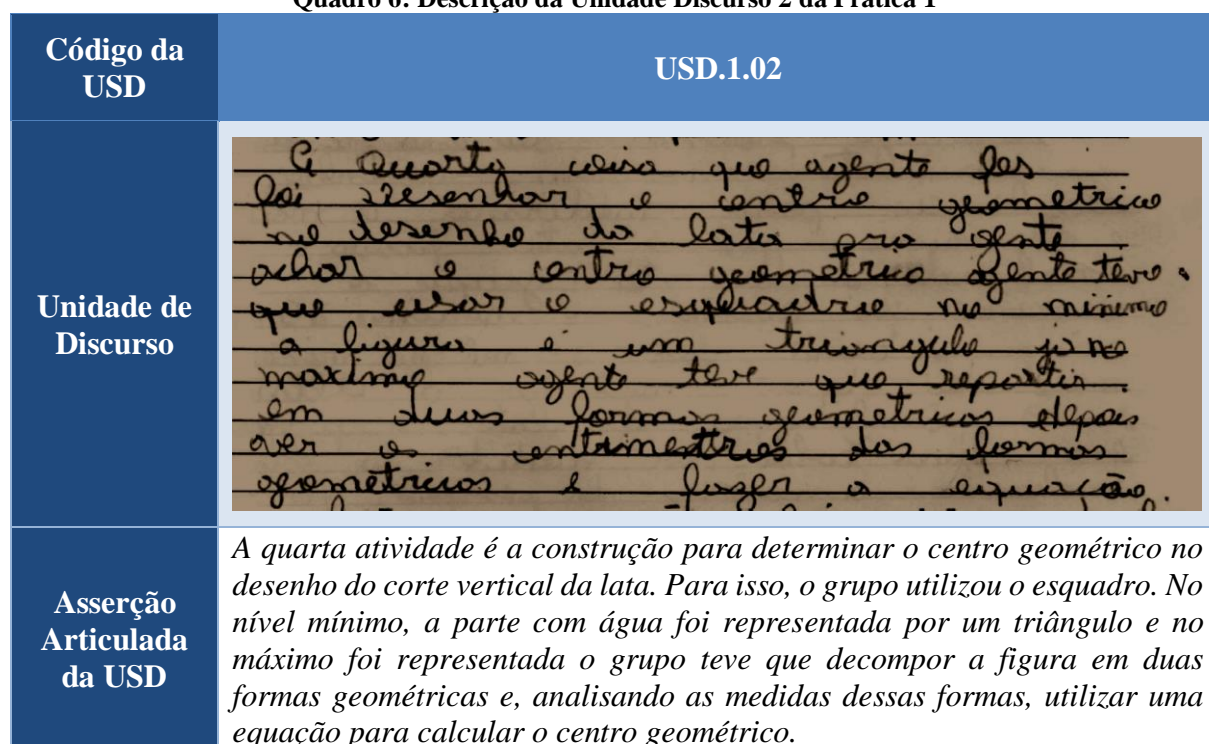 Quadro 6: Descrição da Unidade Discurso 2 da Prática 1
Código da
USD
USD.1.02
Unidade de
Discurso
A Quarta coisa que agente fes
foi desenhar o centro geometrico
no desenho da lata pra gente
achar o centro geometrico agente teve
que usar o esquadro no minimo
a figura é um triangulo já no
maximo agente teve que repartir
em duas formas geometricas depois
ver os entimetros das formas
geometricas e fazer a equação.
Asserção
Articulada
da USD
A quarta atividade é a construção para determinar o centro geométrico no
desenho do corte vertical da lata. Para isso, o grupo utilizou o esquadro. No
nível mínimo, a parte com água foi representada por um triângulo e no
máximo foi representada o grupo teve que decompor a figura em duas
formas geométricas e, analisando as medidas dessas formas, utilizar uma
equação para calcular o centro geométrico.